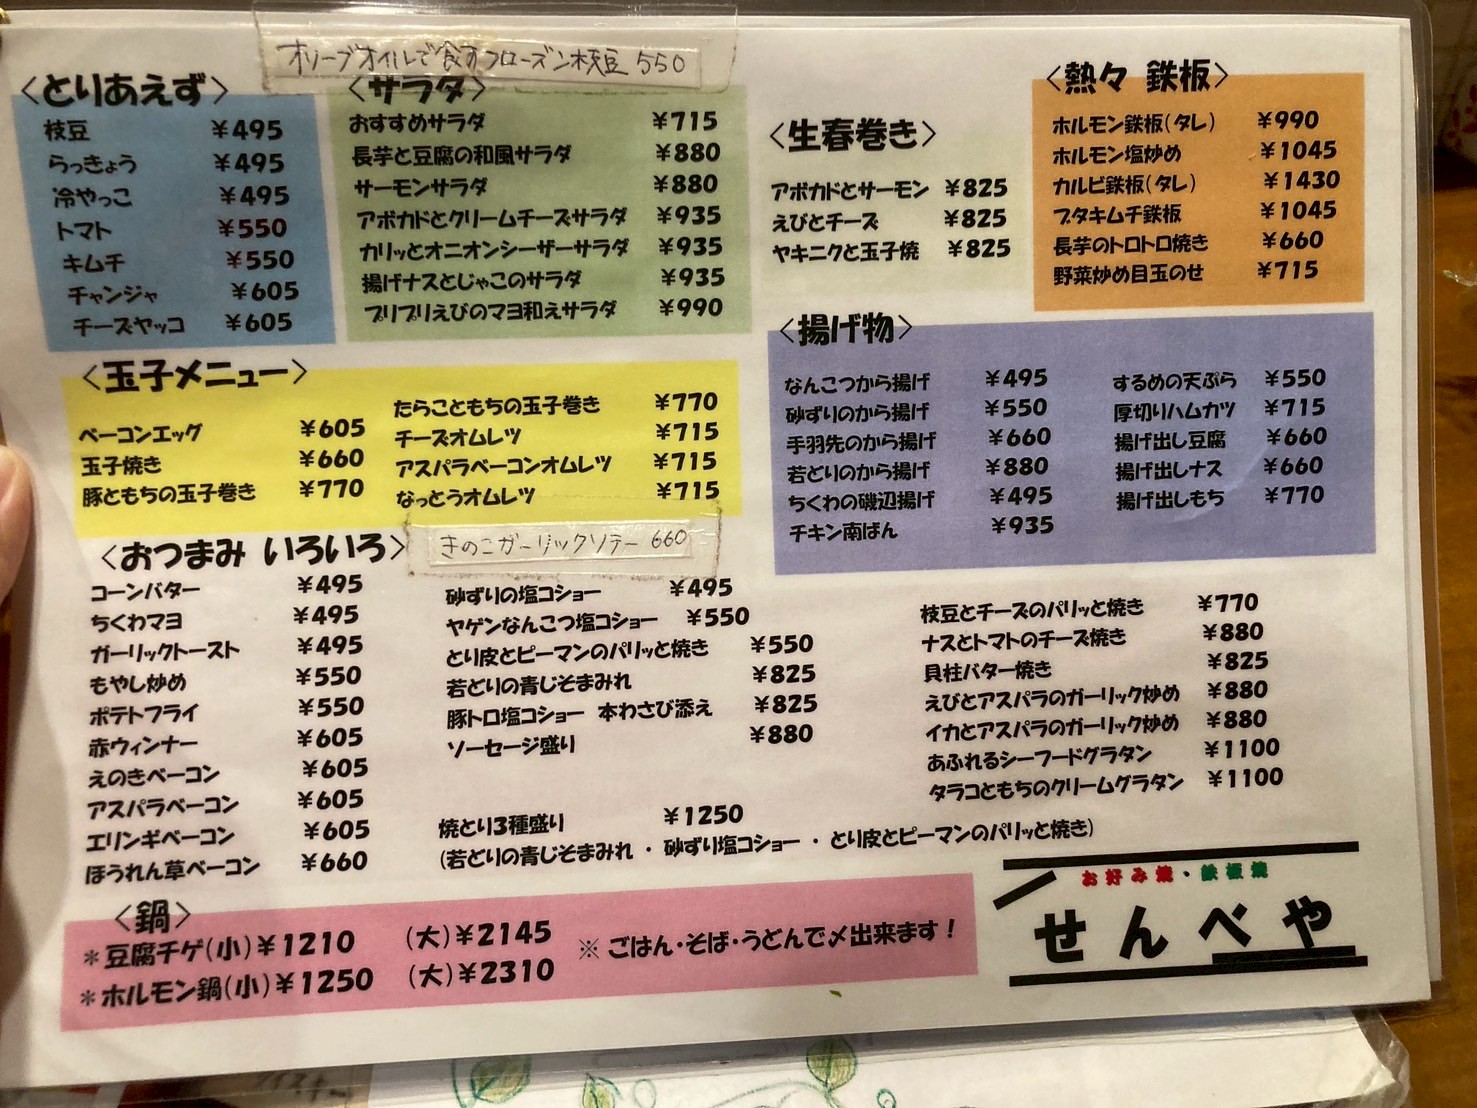 オリーブオイルで食すフローズン枝豆 550
<とりあえず>
枝豆 ¥495
らっきょう ¥495
冷やっこ ¥495
トマト ¥550
キムチ ¥550
チャンジャ ¥605
チーズヤッコ ¥605
<サラダ>
おすすめサラダ ¥715
長芋と豆腐の和風サラダ ¥880
サーモンサラダ ¥880
アボカドとクリームチーズサラダ ¥935
カリッとオニオンシーザーサラダ ¥935
揚げナスとじゃこのサラダ ¥935
プリプリえびのマヨ和えサラダ ¥990
<生春巻き>
アボカドとサーモン ¥825
えびとチーズ ¥825
ヤキニクと玉子焼 ¥825
<熱々 鉄板>
ホルモン鉄板(タレ) ¥990
ホルモン塩炒め ¥1045
カルビ鉄板(タレ) ¥1430
ブタキムチ鉄板 ¥1045
長芋のトロトロ焼き ¥660
野菜炒め目玉のせ ¥715
<玉子メニュー>
ベーコンエッグ ¥605
玉子焼き ¥660
豚ともちの玉子巻き ¥770
たらこともちの玉子巻き ¥770
チーズオムレツ ¥715
アスパラベーコンオムレツ ¥715
なっとうオムレツ ¥715
<揚げ物>
なんこつから揚げ ¥495
砂ずりのから揚げ ¥550
手羽先のから揚げ ¥660
若どりのから揚げ ¥880
ちくわの磯辺揚げ ¥495
チキン南ばん ¥935
するめの天ぷら ¥550
厚切りハムカツ ¥715
揚げ出し豆腐 ¥660
揚げ出しナス ¥660
揚げ出しもち ¥770
<おつまみ いろいろ>
きのこガーリックソテー 660
コーンバター ¥495
ちくわマヨ ¥495
ガーリックトースト ¥495
もやし炒め ¥550
ポテトフライ ¥550
赤ウィンナー ¥605
えのきベーコン ¥605
アスパラベーコン ¥605
エリンギベーコン ¥605
ほうれん草ベーコン ¥660
砂ずりの塩コショー ¥495
ヤゲンなんこつ塩コショー ¥550
とり皮とピーマンのパリッと焼き ¥550
若どりの青じそまみれ ¥825
豚トロ塩コショー 本わさび添え ¥825
ソーセージ盛り ¥880
焼とり3種盛り ¥1250
(若どりの青じそまみれ・砂ずり塩コショー・とり皮とピーマンのパリッと焼き)
枝豆とチーズのパリッと焼き ¥770
ナスとトマトのチーズ焼き ¥880
貝柱バター焼き ¥825
えびとアスパラのガーリック炒め ¥880
イカとアスパラのガーリック炒め ¥880
あふれるシーフードグラタン ¥1100
タラコともちのクリームグラタン ¥1100
<鍋>
*豆腐チゲ(小)¥1210 (大)¥2145
*ホルモン鍋(小)¥1250 (大)¥2310
※ ごはん・そば・うどんで〆出来ます!
お好み焼・鉄板焼
せんべや